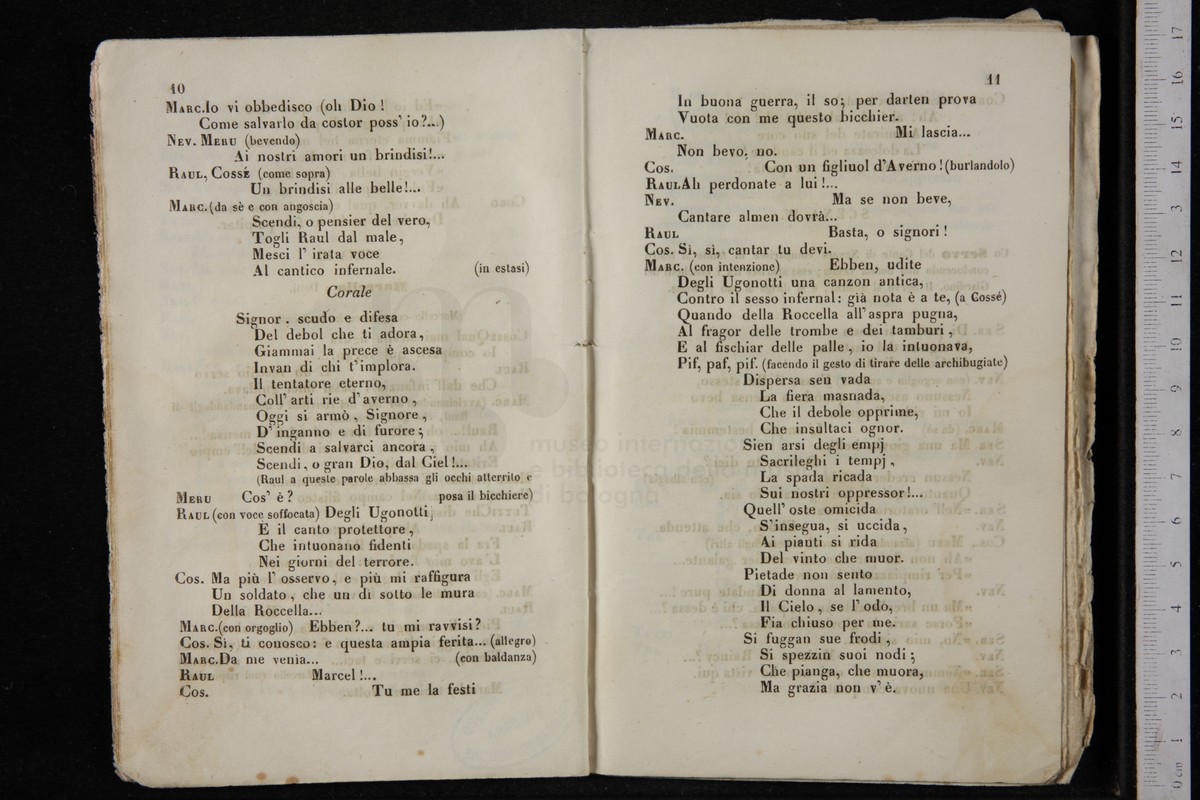 10
MARC.Io vi obbedisco (oh Dio !
Come salvarlo da costor poss' io?...)
NEV. MERU (bevendo)
Ai nostri amori un brindisi!...
RAUL, COSSÉ (come sopra)
Un brindisi alle belle!...
MARC.(da sè e con angoscia)
Scendi, o pensier del vero,
Togli Raul dal male,
Mesci l' irata voce
Al cantico infernale. (in estasi)
Corale
Signor . scudo e difesa
Del debol che ti adora,
Giammai la prece è ascesa
Invan di chi t'implora.
Il tentatore eterno,
Coll' arti rie d'averno,
Oggi si armò, Signore,
D' inganno e di furore;
Scendi a salvarci ancora,
Scendi, o gran Dio, dal Ciel!...
(Raul a queste parole abbassa gli occhi atterrito e
MERU Cos' è? posa il bicchiere)
RAUL (con voce soffocata) Degli Ugonotti
E il canto protettore,
Che intuonano fidenti
Nei giorni del terrore.
COS. Ma più l' osservo, e più mi raffigura
Un soldato, che un di sotto le mura
Della Roccella...
MARC.(con orgoglio) Ebben?... tu mi ravvisi?
COS. Sì, ti conosco: e questa ampia ferita... (allegro)
MARC.Da me venia... (con baldanza)
RAUL Marcel!...
COS. Tu me la festi
11
In buona guerra, il so; per darten prova
Vuota con me questo bicchier.
MARC. Mi lascia...
Non bevo, no.
COS. Con un figliuol d'Averno! (burlandolo)
RAUL Ah perdonate a lui!...
NEV. Ma se non beve,
Cantare almen dovrà...
RAUL Basta, o signori!
COS. Sì, sì, cantar tu devi.
MARC. (con intenzione) Ebben, udite
Degli Ugonotti una canzon antica,
Contro il sesso infernal: già nota è a te, (a Cossé)
Quando della Roccella all'aspra pugna,
Al fragor delle trombe e dei tamburi,
E al fischiar delle palle, io la intuonava,
Pif, paf, pif. (facendo il gesto di tirare delle archibugiate)
Dispersa sen vada
La fiera masnada,
Che il debole opprime,
Che insultaci ognor.
Sien arsi degli empj
Sacrileghi i tempj,
La spada ricada
Sui nostri oppressor!...
Quell' oste omicida
S'insegua, si uccida,
Ai pianti si rida
Del vinto che muor.
Pietade non sento
Di donna al lamento,
Il Cielo, se l' odo,
Fia chiuso per me.
Si fuggan sue frodi,
Si spezzin suoi nodi;
Che pianga, che muora,
Ma grazia non v' è.
museo internazio
e biblioteca della m
di bologna